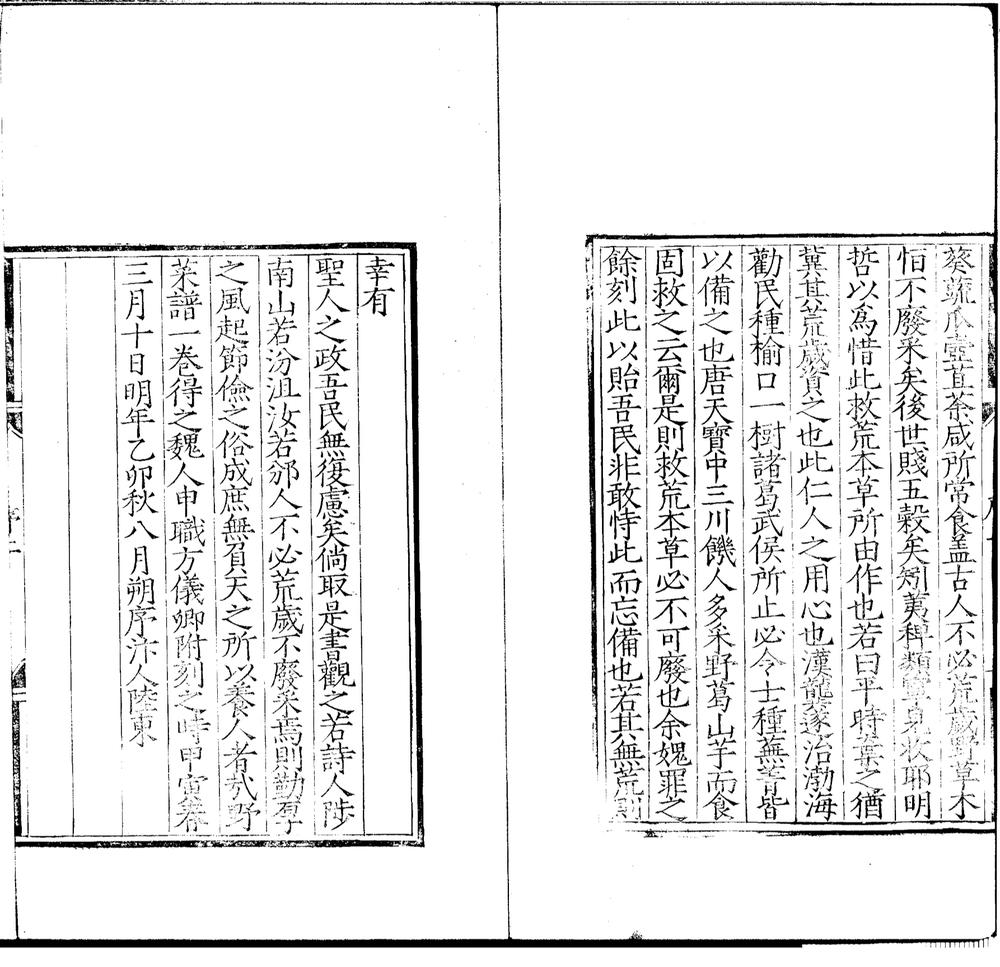 葵蔬瓜壺苴荼咸所常食盖古人不必荒歲野草木
恒不廢采矣後世賤五穀矣矧荑稗類
哲以為惜此救荒本草所由作也若曰平時葉之猶
冀其荒歲資之也此仁人之用心也漢龔遂治渤海
勸民種榆口一樹諸葛武侯所止必令士種蕪菁皆
以備之也唐天寶中三川饑人多采野葛山芋而食
固救之云爾是則救荒本草必不可廢也余媿罪之
餘刻此以貽吾民非敢恃此而忘備也若其無荒則
幸有
聖人之政吾民無復慮矣倘取是書觀之若詩人陟
南山若汾沮洳若邠人不必荒歲不廢采焉則勤
之風起節儉之俗成庶無負天之所以養人者哉野
菜譜一卷得之魏人申職方儀卿附刻之時甲寅春
三月十日明年乙卯秋八月朔序汴人陸柬
序二